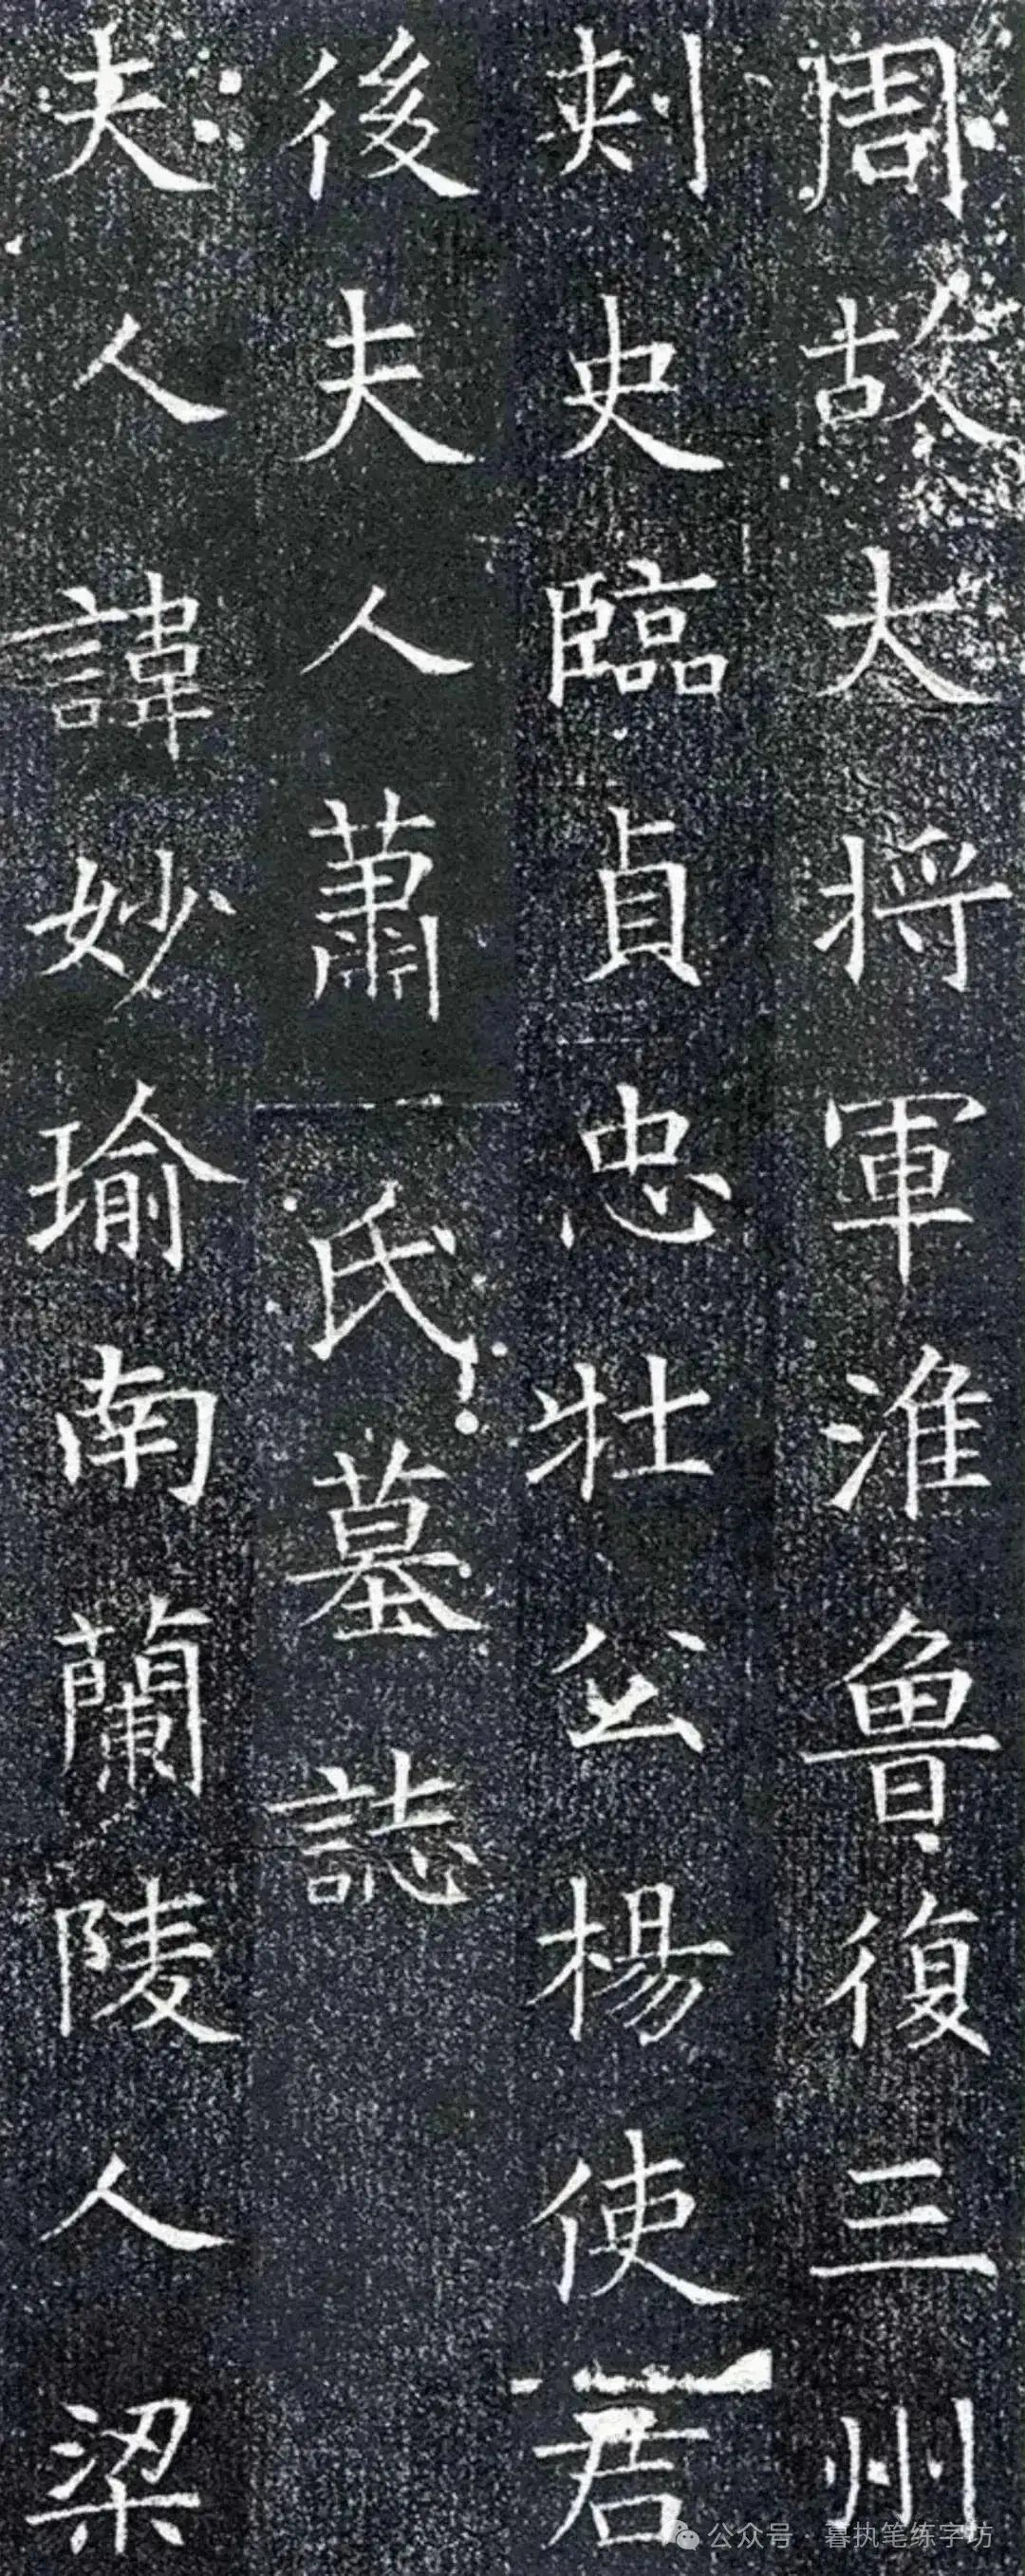 周故大将軍淮魯復三州
刾史臨貞忠壯公楊使君
後夫人蕭氏墓誌
夫人諱妙瑜南蘭陵人梁
公众号·暮执笔练字坊